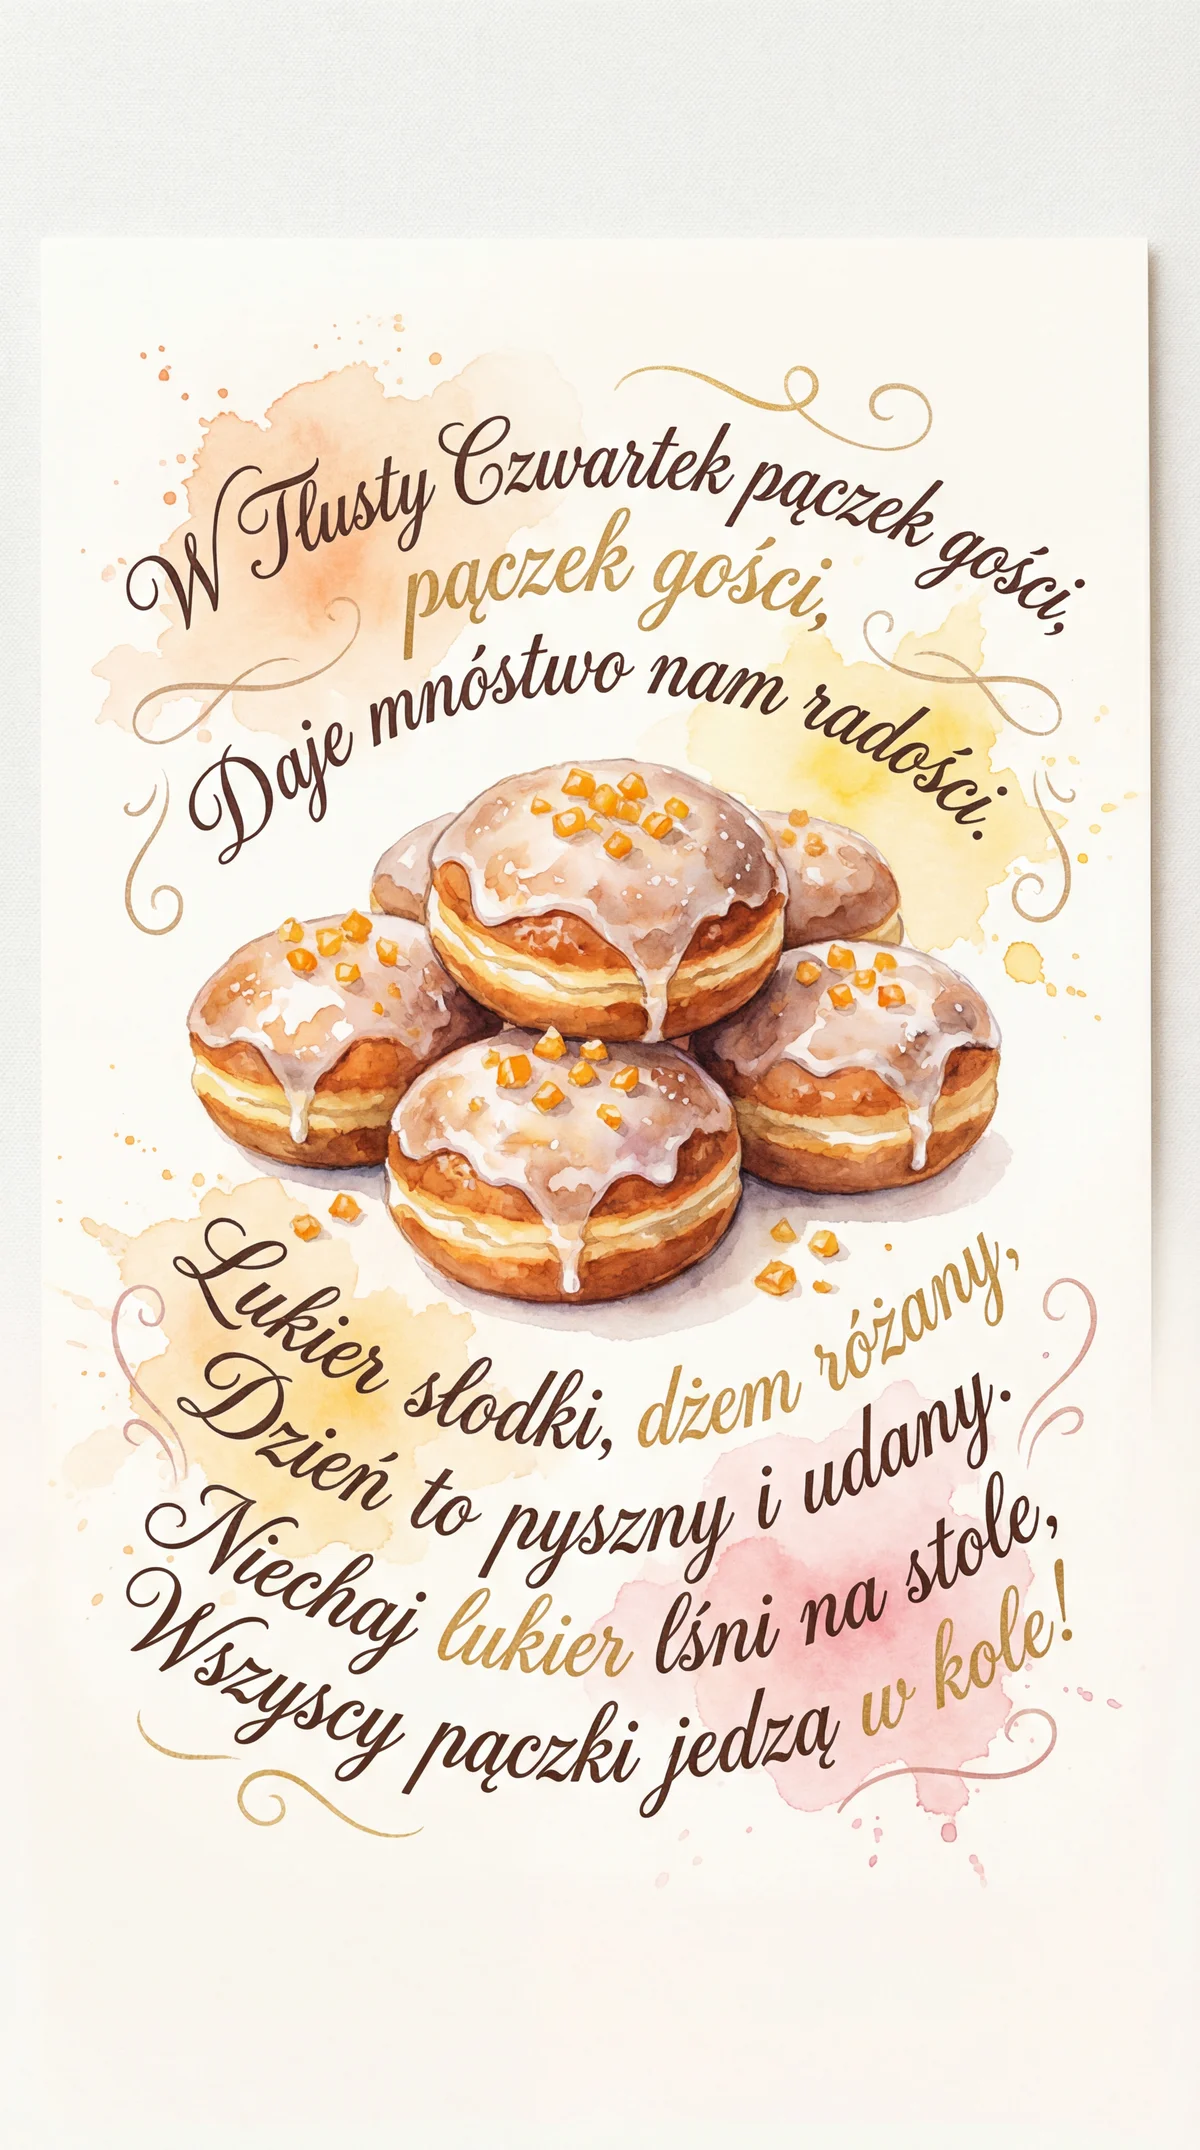 W Tłusty Czwartek pączek gości,
pączek gości,
Daje mnóstwo nam radości.
Lukier słodki, dżem różany,
Dzień to pyszny i udany.
Niechaj lukier lśni na stole,
Wszyscy pączki jedzą w kole!